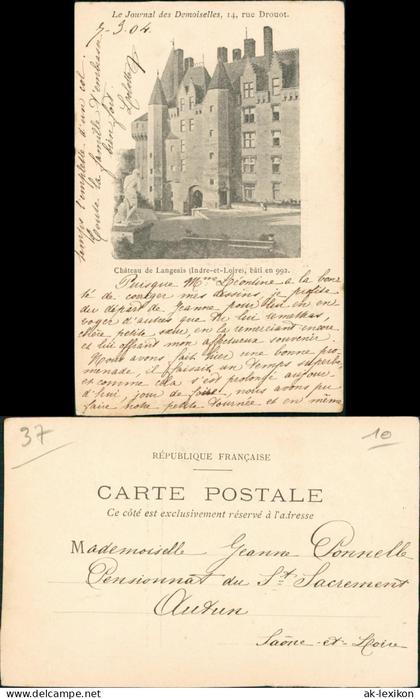 Le Journal des Demoiselles, 14, rue Drouot.
7-3.04
temps l'emplette d'un col.
Toute la famille t'embrasse
bien fort
Château de Langeais (Indre-et-Loire), bâti en 992.
Puisque Mme Léontine a la bon-
té de corriger mes dessins, je profite
du départ de Jeanne pour bien en en-
voyer d'autres que tu lui remettras,
chère petite sœur, en la remerciant encore
et lui offrant mon affectueux souvenir.
Nous avons fait hier une bonne pro-
menade, il faisait un temps superbe,
et comme cela s'est prolongé aujour-
d'hui, jour de foire, nous avons pu
faire notre petite tournée et en même
37
10
RÉPUBLIQUE FRANÇAISE
CARTE POSTALE
Ce côté est exclusivement réservé à l'adresse
Mademoiselle Jeanne Ponnelle
Pensionnat du St Sacrement
Autun
Saône-et-Loire
www.delcampe.net
ak-lexikon